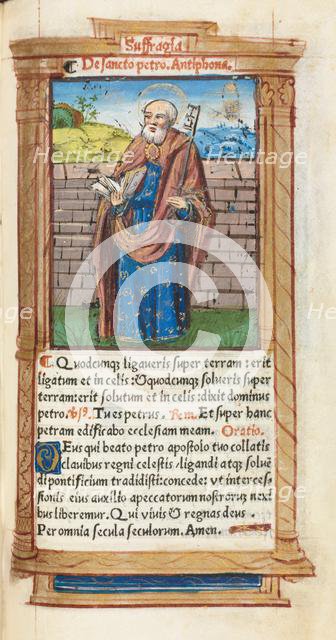 Suffragia
De sancto petro. Antiphona.
Quodcunqꝫ ligaveris super terram: erit
ligatum et in celis: Et quodcunqꝫ solveris super
terram: erit solutum et in celis: dixit dominus
petro. Vs̄. Tu es petrus. Rem. Et super hanc
petram edificabo ecclesiam meam. Oratio.
Deus qui beato petro apostolo tuo collatis
clavibus regni celestis / ligandi atqꝫ solve
di pontificium tradidisti: concede: vt interces
sionis eius auxilio a peccatorum nostrorum nexi
bus liberemur. Qui vivis Et regnas deus.
Per omnia secula seculorum. Amen.
Heritage
Heritage
Heritage
Heritage
Heritage
Heritage